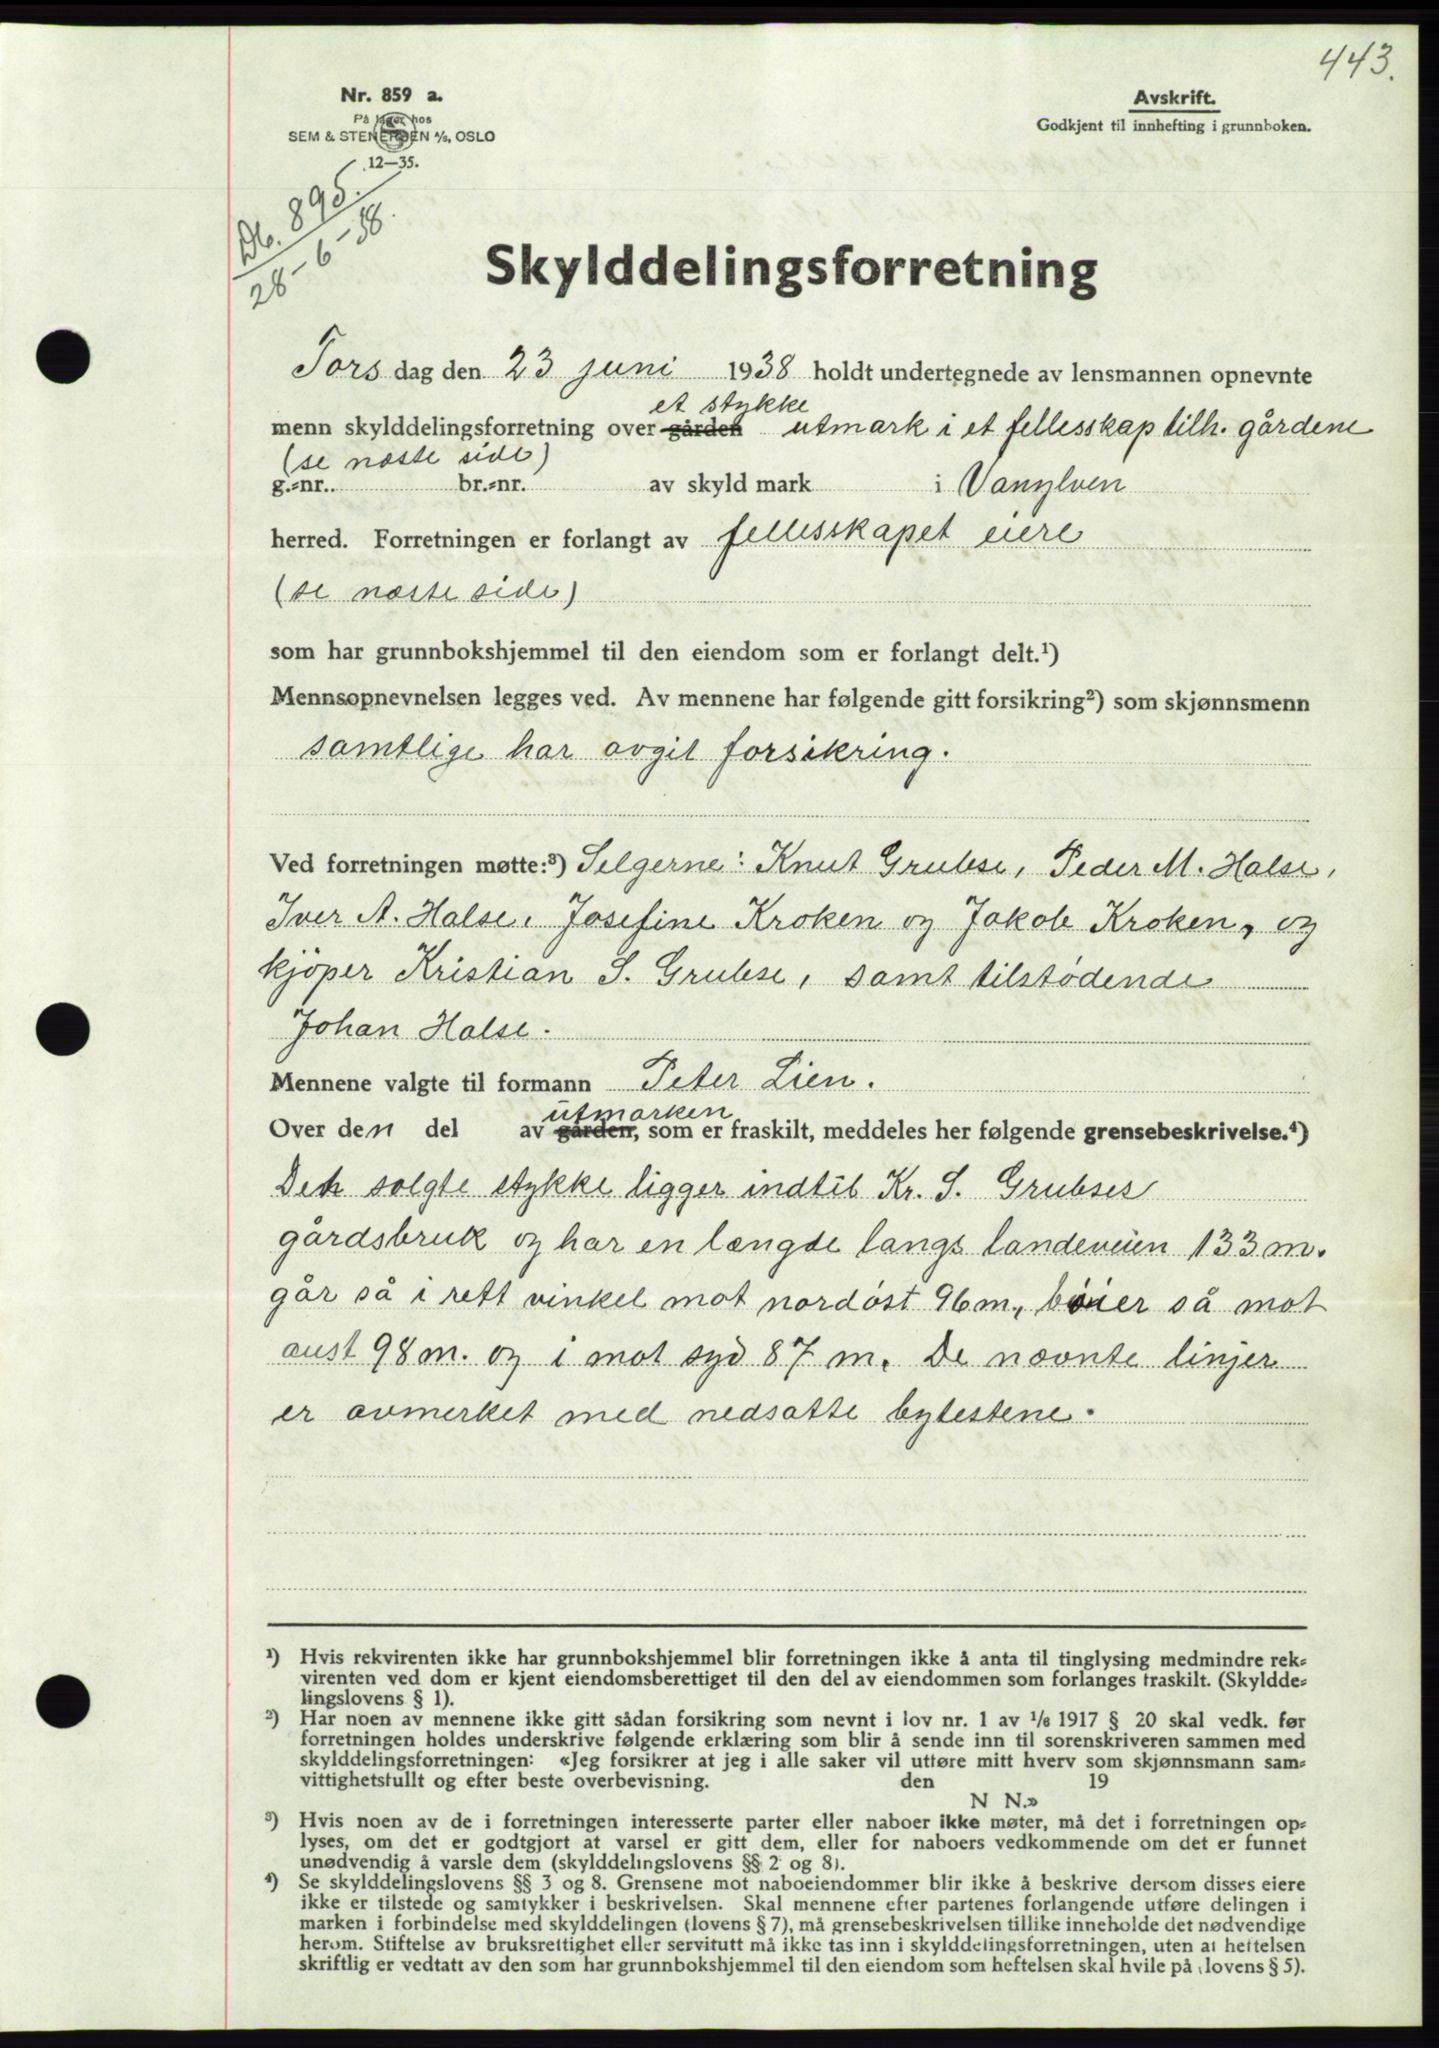 443.
Nr. 859 a.
På lager hos
SEM & STENERSEN A/S, OSLO
12—35.
Avskrift.
Godkjent til innhefting i grunnboken.
Db. 895.
28-6-38.
Skylddelingsforretning
Tors dag den 23 juni 1938 holdt undertegnede av lensmannen opnevnte
et stykke
menn skylddelingsforretning over gården utmark i et fellesskap tilh. gårdene
(se næste side)
g.=nr. br.=nr. av skyld mark i Vanylven
herred. Forretningen er forlangt av fellesskapet eiere
(se næste side)
som har grunnbokshjemmel til den eiendom som er forlangt delt.¹)
Mennsopnevnelsen legges ved. Av mennene har følgende gitt forsikring²) som skjønnsmenn
samtlige har avgit forsikring.
Ved forretningen møtte:³) Selgerne: Knut Grubse, Peder M. Halse,
Iver A. Halse, Josefine Kroken og Jakob Kroken, og
kjöper Kristian S. Grubse, samt tilstödende
Johan Halse.
Mennene valgte til formann Peter Lien.
utmarken
Over den del av gården, som er fraskilt, meddeles her følgende grensebeskrivelse.⁴)
Det solgte stykke ligger indtil Kr. S. Grubses
gårdsbruk og har en længde langs landeveien 133 m.
går så i rett vinkel mot nordöst 96 m., böier så mot
aust 98 m. og i mot syd 87 m. De nævnte linjer
er avmerket med nedsatte bytestene.
¹) Hvis rekvirenten ikke har grunnbokshjemmel blir forretningen ikke å anta til tinglysing medmindre rek=
virenten ved dom er kjent eiendomsberettiget til den del av eiendommen som forlanges fraskilt. (Skyldde=
lingslovens § 1).
²) Har noen av mennene ikke gitt sådan forsikring som nevnt i lov nr. 1 av 1/6 1917 § 20 skal vedk. før
forretningen holdes underskrive følgende erklæring som blir å sende inn til sorenskriveren sammen med
skylddelingsforretningen: «Jeg forsikrer at jeg i alle saker vil utføre mitt hverv som skjønnsmann sam=
vittighetsfullt og efter beste overbevisning. den 19
N N.»
³) Hvis noen av de i forretningen interesserte parter eller naboer ikke møter, må det i forretningen op=
lyses, om det er godtgjort at varsel er gitt dem, eller for naboers vedkommende om det er funnet
unødvendig å varsle dem (skylddelingslovens §§ 2 og 8).
⁴) Se skylddelingslovens §§ 3 og 8. Grensene mot naboeiendommer blir ikke å beskrive dersom disses eiere
ikke er tilstede og samtykker i beskrivelsen. Skal mennene efter partenes forlangende utføre delingen i
marken i forbindelse med skylddelingen (lovens § 7), må grensebeskrivelsen tillike inneholde det nødvendige
herom. Stiftelse av bruksrettighet eller servitutt må ikke tas inn i skylddelingsforretningen, uten at heftelsen
skriftlig er vedtatt av den som har grunnbokshjemmel til den eiendom som heftelsen skal hvile på (lovens § 5).